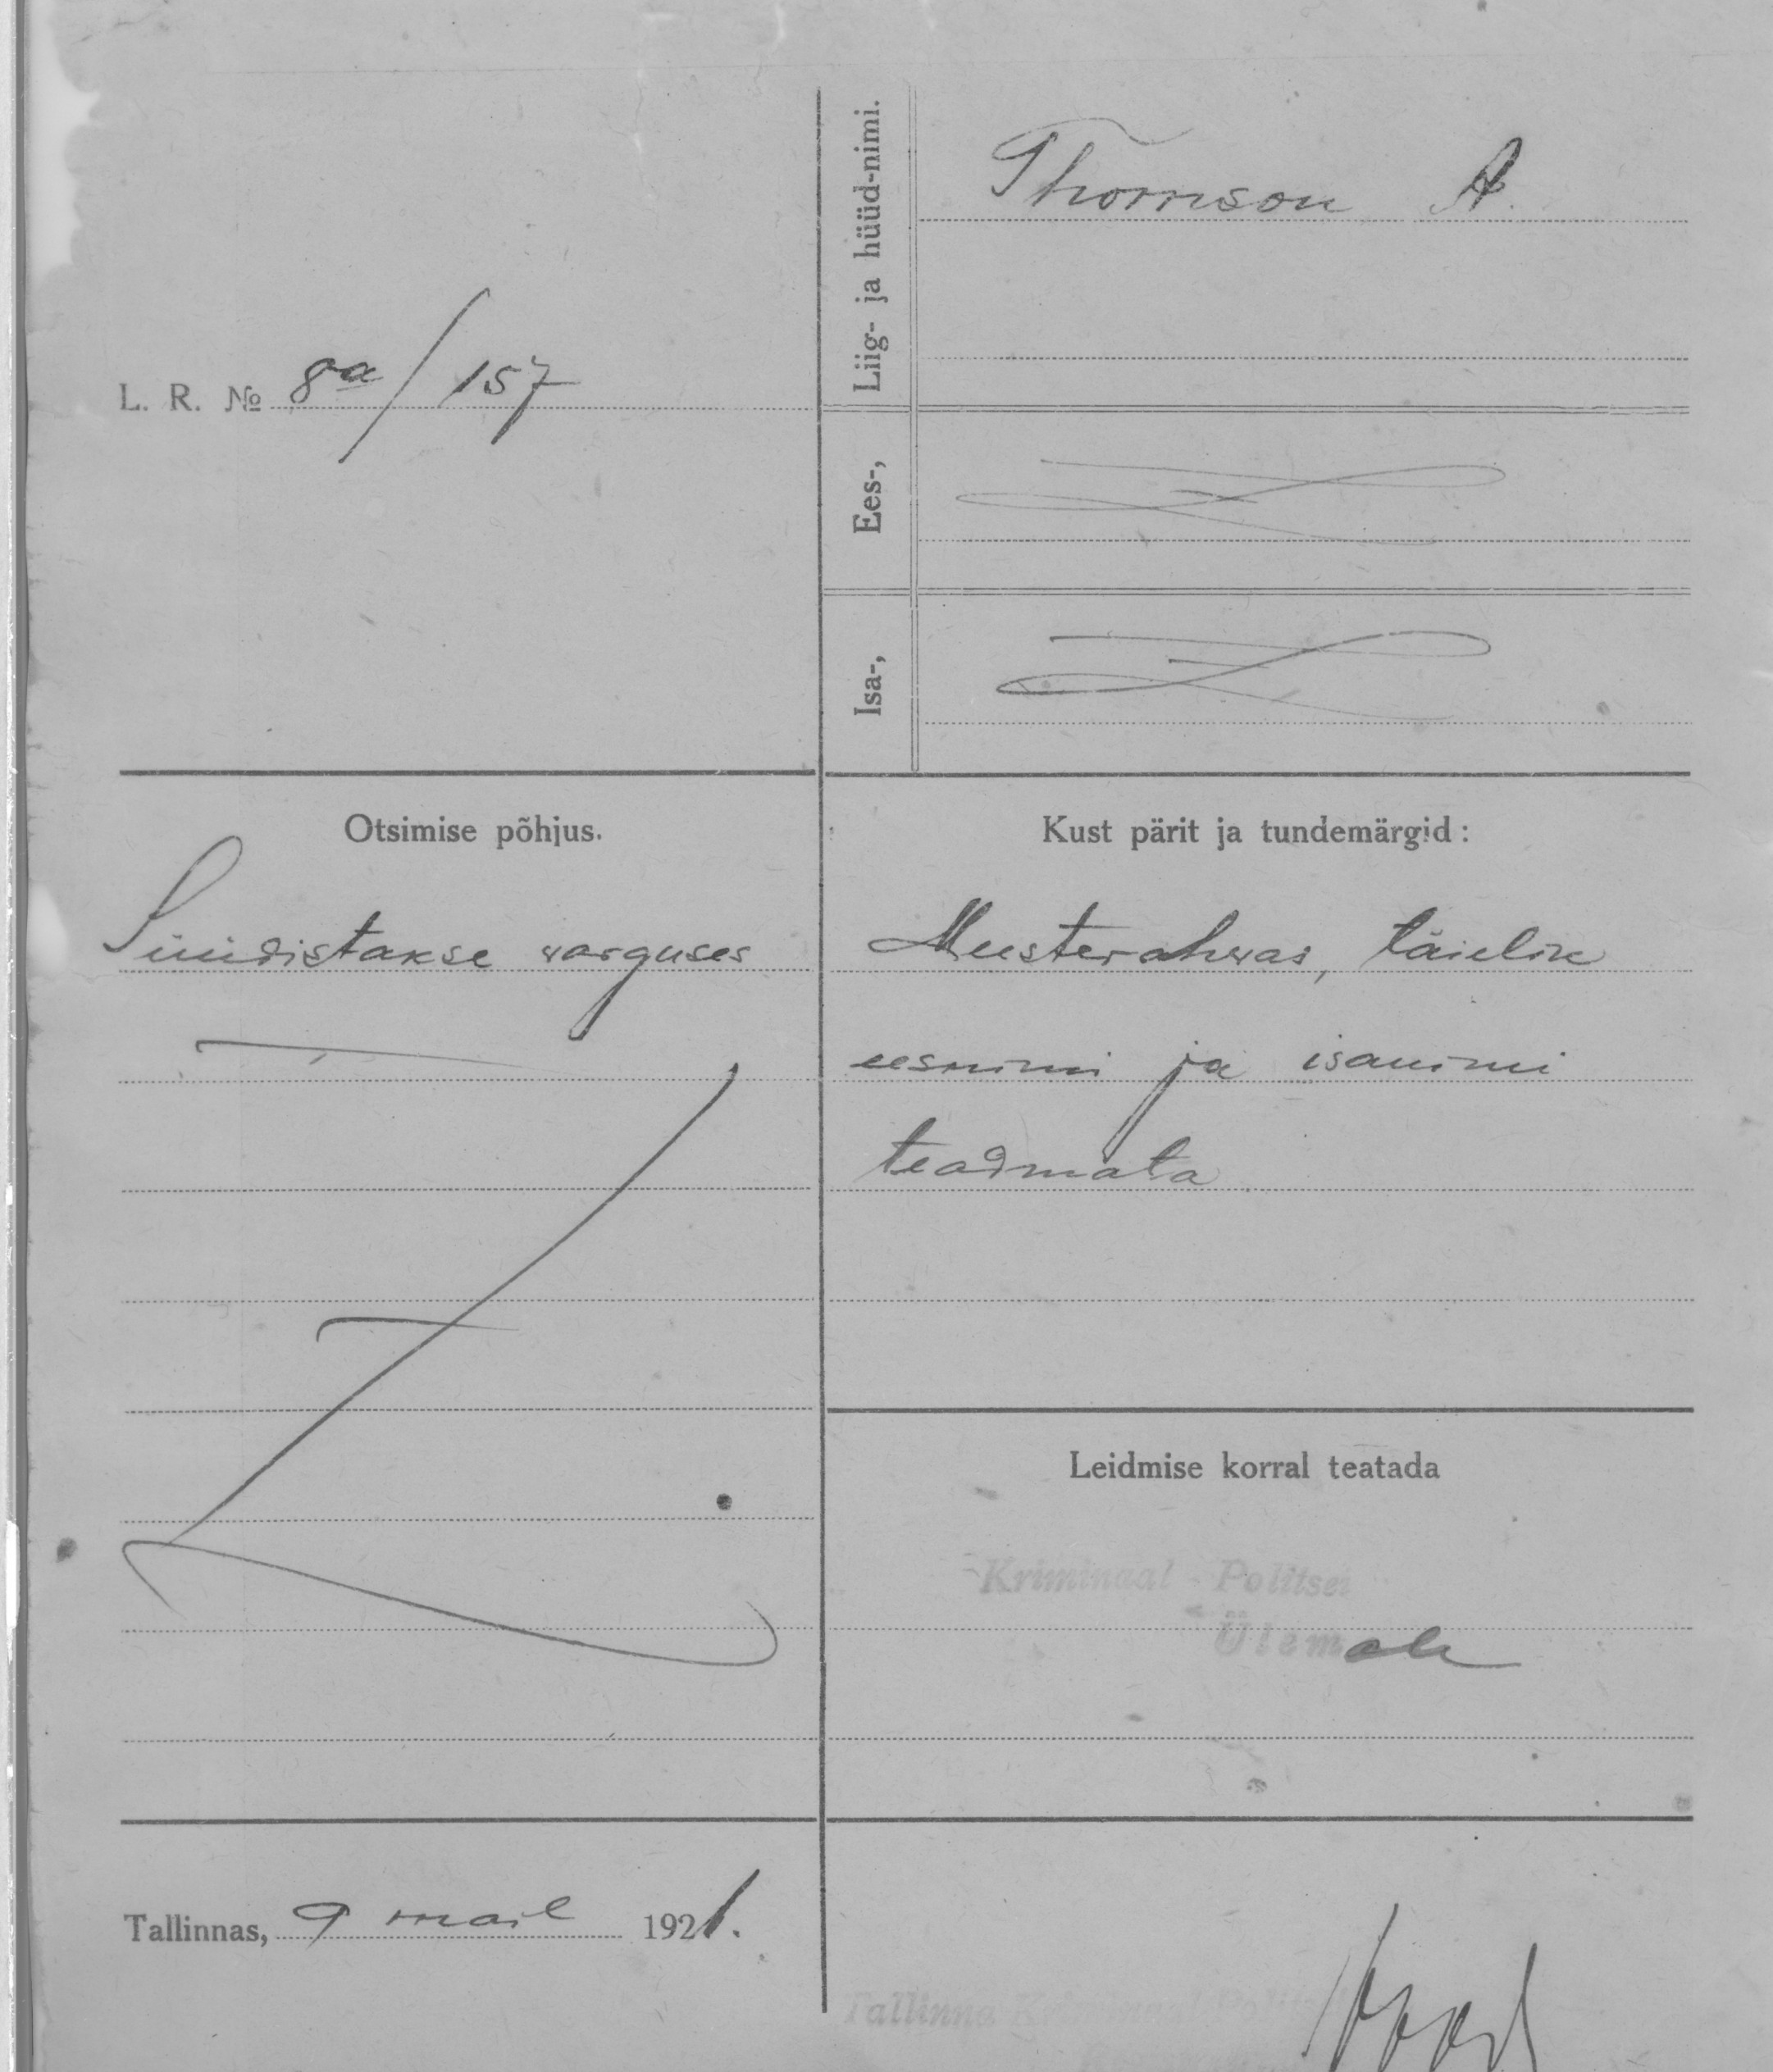 Liig- ja hüüd-nimi.
Thomson A.
L. R. № 8a/157
Ees-,
Isa-,
Otsimise põhjus.
Süüdistakse warguses
Kust pärit ja tundemärgid:
Meesterahwas, täielik
eesnimi ja isanimi
teadmata
Leidmise korral teatada
Kriminaal - Politsei
Ülemale
Tallinnas, 9 mail 1921.
Tallinna Kriminaal-Politsei